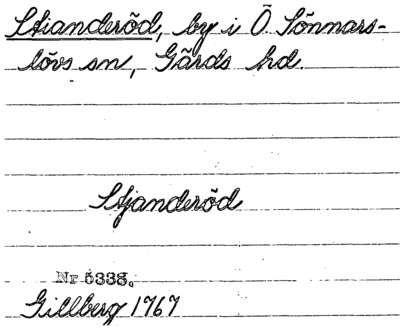 Stianderöd, by i Ö. Sönnars-
lövs sn, Gärds hd.
Stjanderöd
Nr 5338.
Gillberg 1767